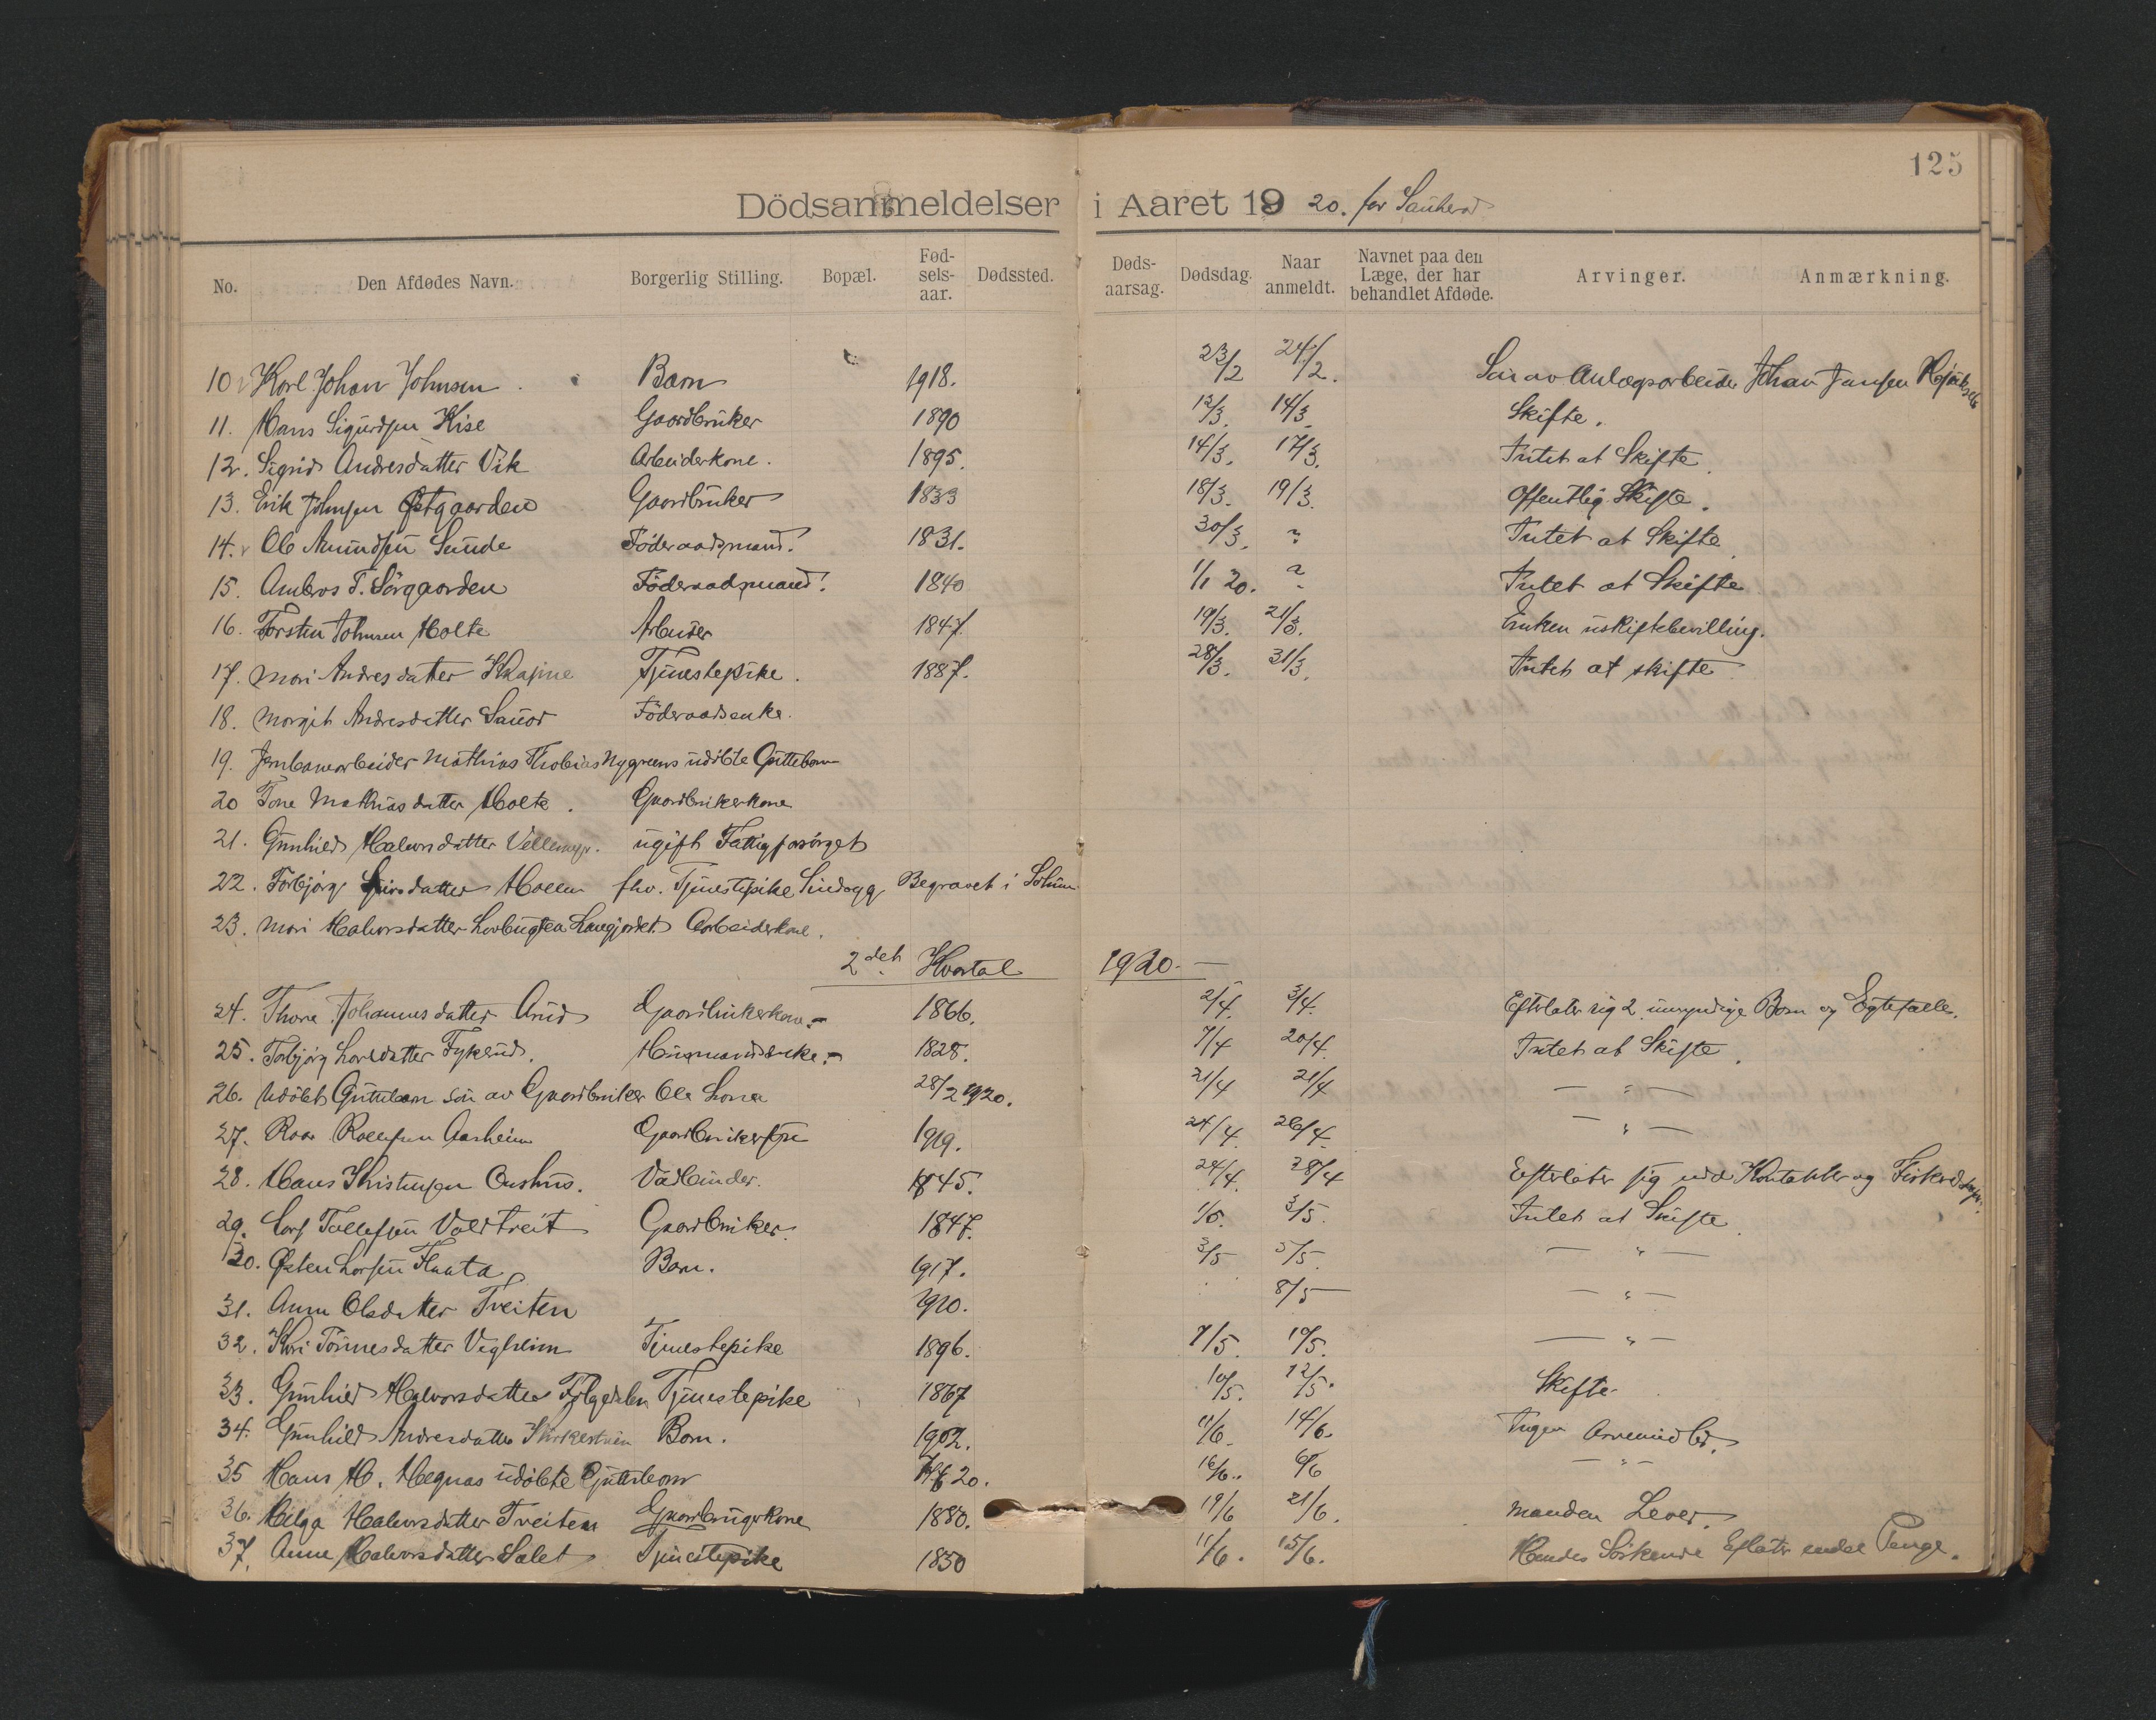 125
Dödsanmeldelser i Aaret 1920. for Sauherad
No. Den Afdødes Navn. Borgerlig Stilling. Bopæl. Fødselsaar. Dødssted. Dødsaarsag. Dødsdag. Naar anmeldt. Navnet paa den Læge, der har behandlet Afdøde. Arvinger. Anmærkning.
10 Karl Johan Johnsen . Barn 1918. 23/2 24/2. Søn av Anlægsarbeider Johan Jansen
11. Hans Sigurdsen Kise Gaardbruker 1890 12/3. 14/3. Skifte.
12. Sigrid Andresdatter Vik Arbeiderkone. 1895. 14/3. 17/3. Intet at Skifte.
13. Erik Johnsen Østgaarden Gaardbruker 1833 18/3. 19/3. Offentlig Skifte.
14. Ole Amundsen Sunde Föderaadsmand. 1831. 30/3. " Intet at Skifte.
15. Ambros T. Sörgaarden Föderaadsmand. 1840 1/1 20. " Intet at Skifte
16. Torsten Johnsen Holte Arbeider 1847. 19/3. 21/3. Enken uskiftebevilling.
17. Mari Andresdatter Tjenestepike. 1887. 28/3. 31/3. Intet at skifte
18. Margit Andresdatter Sauar Föderaadsenke.
19. Jernbanearbeider Mathias Thobias Nygreens udöbte Guttebarn
20 Tone Mathiasdatter Holte. Gaardbrukerkone
21. Gunhild Halvorsdatter ugift Fattigforsörget
22. Torbjörg datter Moen fhv. Tjenestepike Begravet i Solum
23. Mari Halvorsdatter Arbeiderkone.
2det Kvartal 1920. —
24. Thora Johannesdatter Arud Gaardbrukerkone.- 1866. 2/4. 3/4. Efterlater sig 2 umyndige Barn og Egtefælle.
25. Torbjörg Larsdatter Fykerud. Husmandsenke.- 1828. 7/4 20/4. Intet at Skifte.
26. Udöbt Guttebarn sön av Gaardbruker Ole 28/2 1920. 21/4 21/4 — " —
27. Roar Rollefsen Aasheim Gaardbrukersön 1919. 24/4. 26/4. — " —
28. Hans Kristensen Aashus. 1845. 24/4. 28/4 Efterlater sig
29. Lars Tollefsen Valdtveit Gaardbruker. 1847. 1/5. 3/5. Intet at Skifte.
30. Østen Larsen Flaata Barn. 1917. 3/5 5/5. — " —
31. Anna Olsdatter Tveiten 1920. 8/5 — " —
32. Kari Tönnesdatter Vigheim Tjenestepike 1896. 7/5. 10/5. — " —
33. Gunhild Halvorsdatter Tjenestepike 1867 10/5. 12/5. Skifte.
34. Gunhild Andresdatter Barn. 1902. 11/6. 14/6. Ingen Arvemidler.
35 Hans H. Hegnas udöbte Guttebarn 20. 16/6. — " —
36. Helga Halvorsdatter Tveiten Gaardbrugerkone 1880. 19/6 21/6. Manden Lever.
37. Anne Halvorsdatter Tjenestepike 1850 11/6. 15/6. Hendes Söskende Eflater endel Penge.